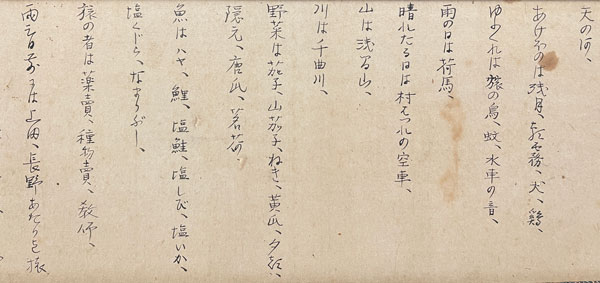 天の河、
あけがのは残月、朝霧、犬、鶏、
ゆふぐれは旅の鳥、蚊、水車の音、
雨の日は荷馬、
晴れたる日は村はづれの空車、
山は浅間山、
川は千曲川、
野菜は茄子、山茄子、ねぎ、黄瓜、夕顔、
隠元、唐瓜、茗荷、
魚はハヤ、鯉、塩鮭、塩しび、塩いか、
塩くじら、なまりぶし、
旅の者は薬賣、種物賣、教師、
両三日前まで上田、長野あたりを旅